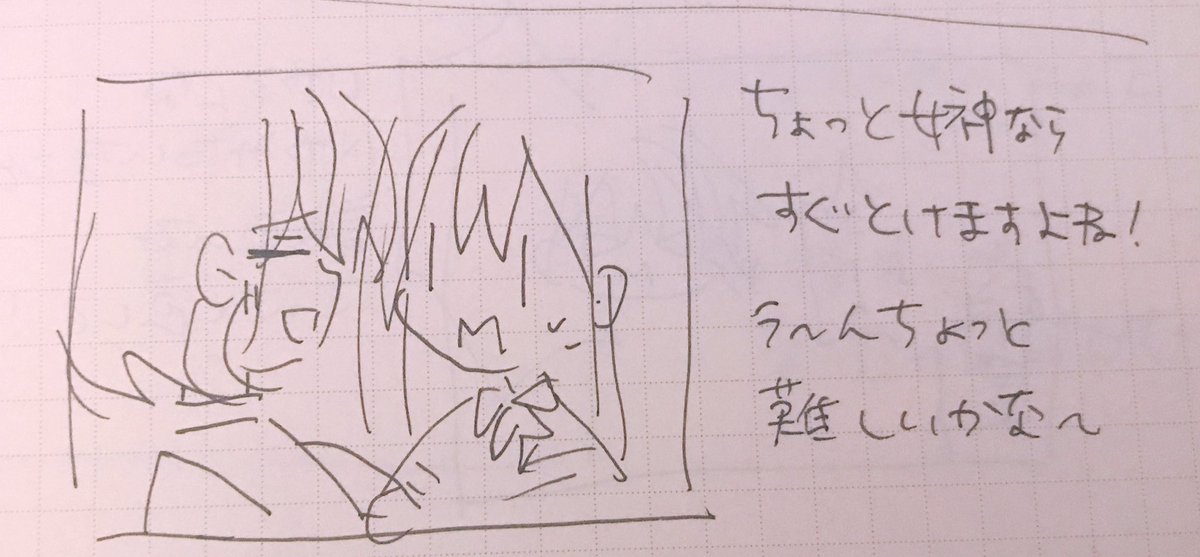 ちょっと女神なら
すぐとけますよね!
う〜んちょっと
難しいかな〜